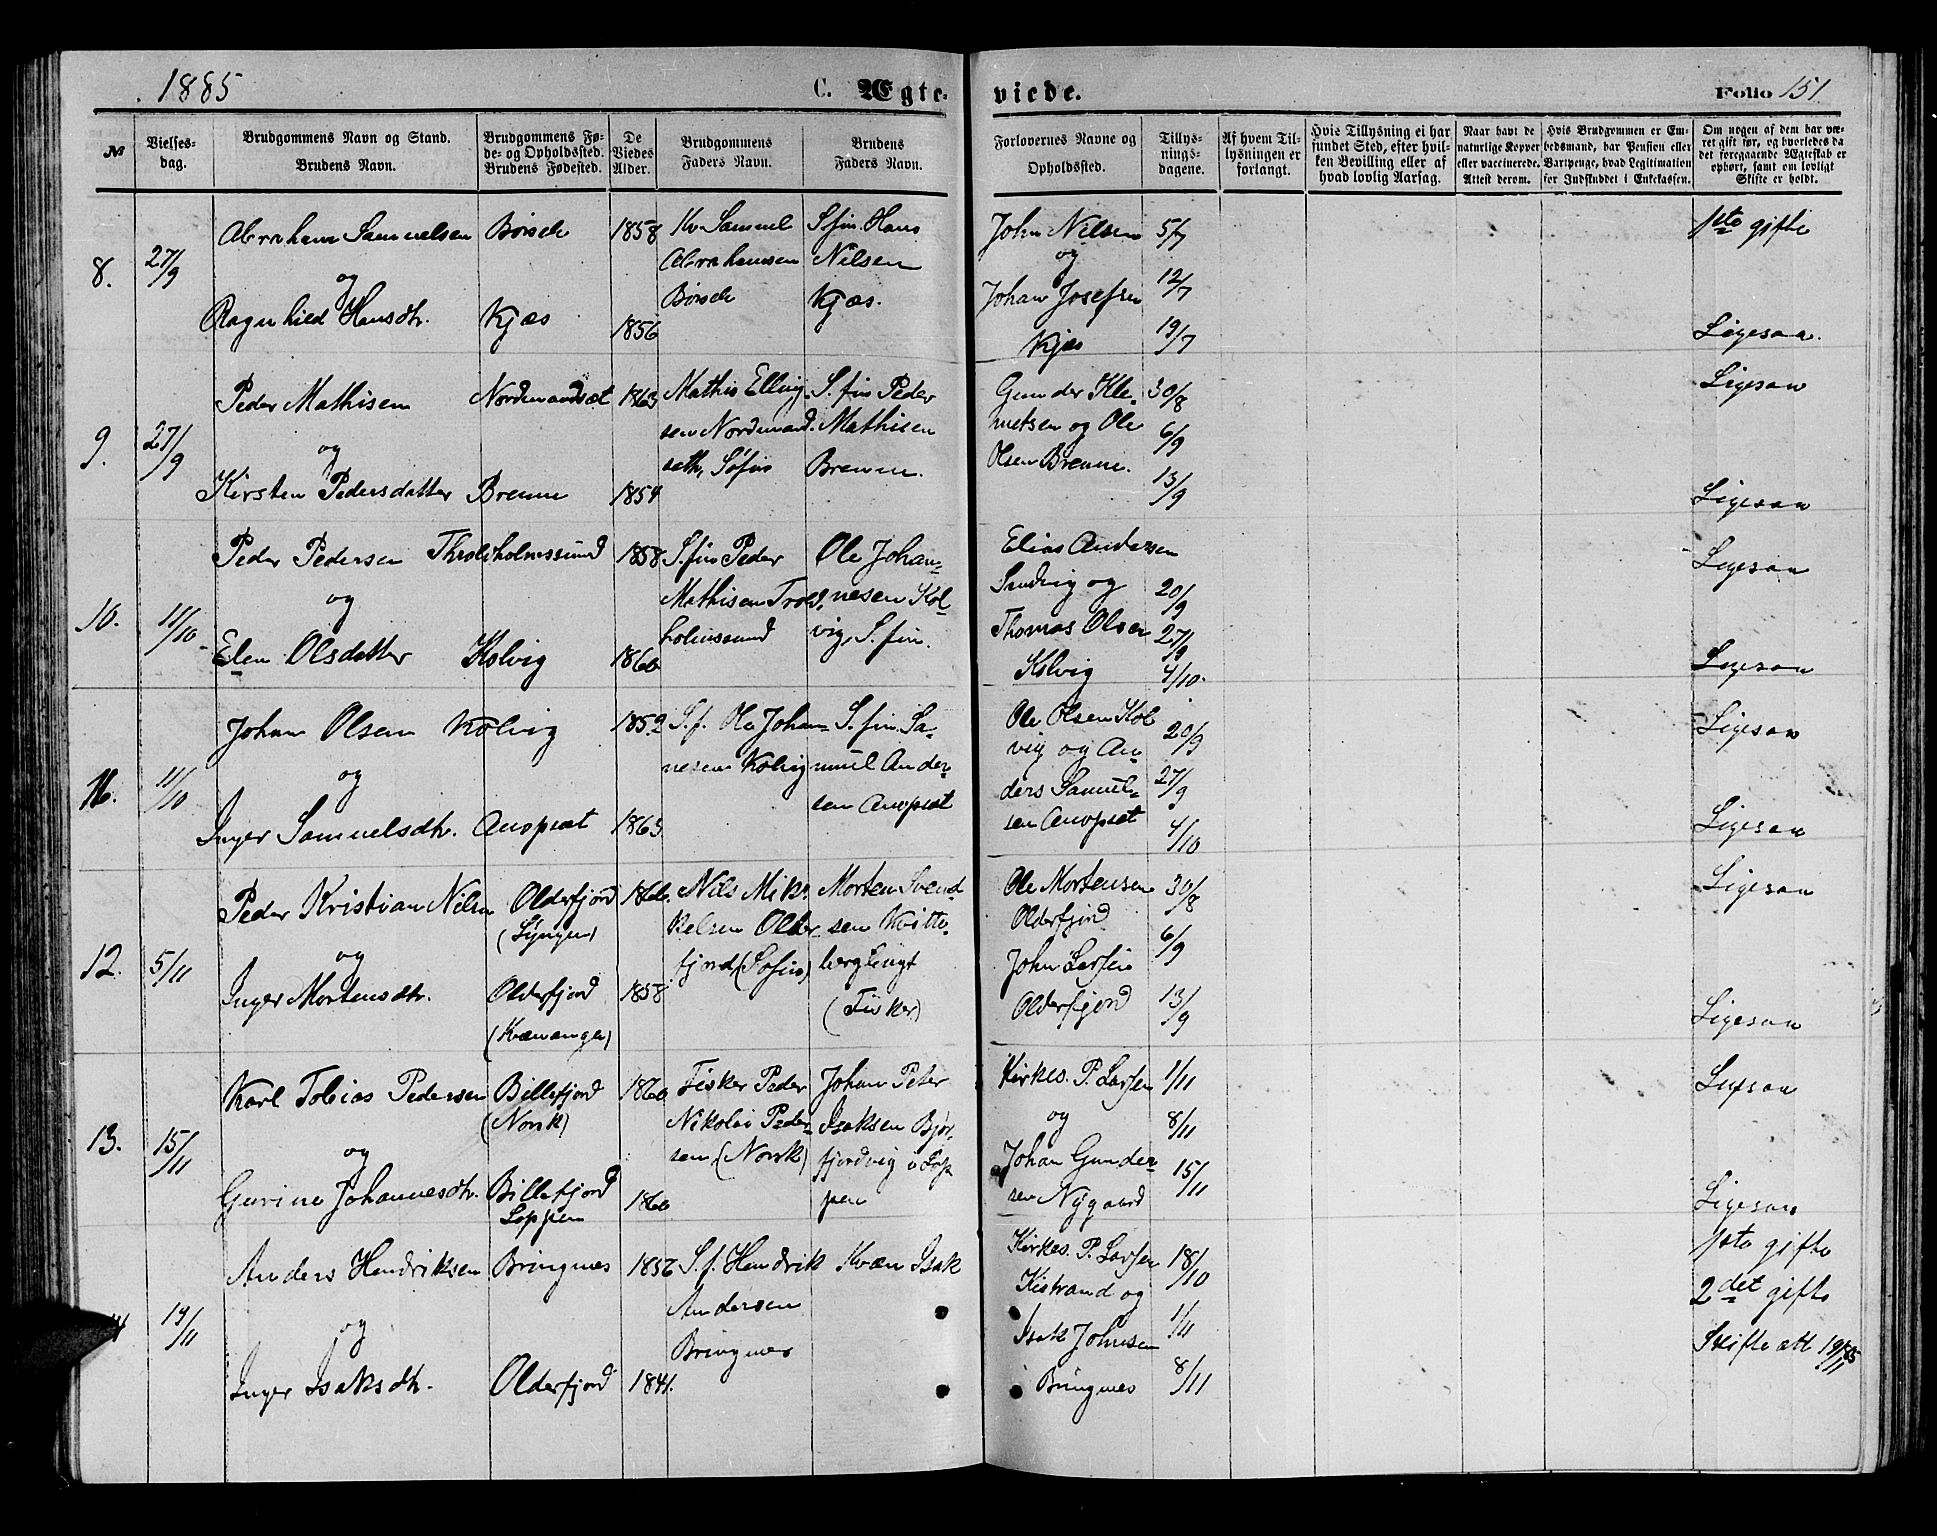 1885
C. Ægte-
viede.
Folio 151
№
Vielses-
dag.
Brudgommens Navn og Stand.
Brudens Navn.
Brudgommens Fø-
de- og Opholdssted.
Brudens Fødested.
De
Viedes
Alder.
Brudgommens
Faders Navn.
Brudens
Faders Navn.
Forlovernes Navne og
Opholdssted.
Tillys-
nings-
dagene.
Af hvem Til-
lysningen er
forlangt.
Hvis Tillysning ei har
fundet Sted, efter hvil-
ken Bevilling eller af
hvad lovlig Aarsag.
Naar havt de
naturlige Kopper
eller vaccinerede.
Attest derom.
Hvis Brudgommen er Em-
bedsmand, har Pension eller
Vartpenge, hvad Legitimation
for Indskuddet i Enkekassen.
Om nogen af dem har væ-
ret gift før, og hvorledes da
det foregaaende Ægteskab er
ophørt, samt om lovligt
Skifte er holdt.
8.
27/9
Abraham Samuelsen
og
Ragnhild Hansdtr.
Børsele
Kjæs
1858
1856
Kv Samuel
Abrahamsen
Børsele
S. fin Hans
Nilsen
Kjæs.
John Nilsen
og
Johan Josefsen
Kjæs
5/7
12/7
19/7
1ste gifte
Ligesaa.
9.
27/9
Peder Mathisen
og
Kirsten Pedersdatter
Nordmandsæt
Brenne
1863
1859
Mathis Elling-
sen Nordmand-
sæth, Søfin
S. fin Peder
Mathisen
Brenne.
Gunder Kle-
metsen og Ole
Olsen Brenne.
30/8
6/9
13/9
Ligesaa
Ligesaa
10.
11/10
Peder Pedersen
og
Elen Olsdatter
Throldholmssund
Kolvig
1858
1860
S. fin Peder
Mathisen Trold-
holmssund
Ole Johan-
nesen Kol-
vig, S. fin.
Elias Andersen
Sandvig og
Thomas Olsen
Kolvig
20/9
27/9
4/10.
Ligesaa
Ligesaa
11.
11/10
Johan Olsen
og
Inger Samuelsdtr.
Kolvig
Anopsæt
1859
1863
S. f. Ole Johan-
nesen Kolvig
S. fin. Sa-
muel Ander-
sen Anopsæt
Ole Olsen Kol
vig og An-
ders Samuel-
sen Anopsæt
20/9
27/9
4/10
Ligesaa
Ligesaa
12.
5/11
Peder Kristian Nilsen
og
Inger Mortensdtr.
Olderfjord
(Lyngen)
Olderfjord
(Kvænangen)
1860.
1858
Nils Mik-
kelsen Older-
fjord, (Søfin)
Morten Svend-
sen Kvitte-
berglingt
(Fisker)
Ole Mortensen
Olderfjord
John Larsen
Olderfjord
30/8
6/9
13/9
Ligesaa
Ligesaa
13.
15/11
Karl Tobias Pedersen
og
Gurine Johannesdtr.
Billefjord
(Norsk)
Billefjord
Loppen
1860
1860
Fisker Peder
Nikolai Peder-
sen, (Norsk)
Johan Peter
Isaksen Bjør-
fjordvig i Lop
pen
Kirkes. P. Larsen
og
Johan Gunder-
sen Nygaard
1/11
8/11
15/11
Ligesaa
Ligesaa
19/11
Anders Hendriksen
og
Inger Isaksdtr.
Bringnes
Olderfjord
1856
1841.
S. f. Hendrik
Andersen
Bringnes
Kvæn Isak
Kirkes. P. Larsen
Kistrand og
Isak Johnsen
Bringnes
18/10
1/11
8/11
1ste gifte
2det gifte
Skifte att 19/11 85